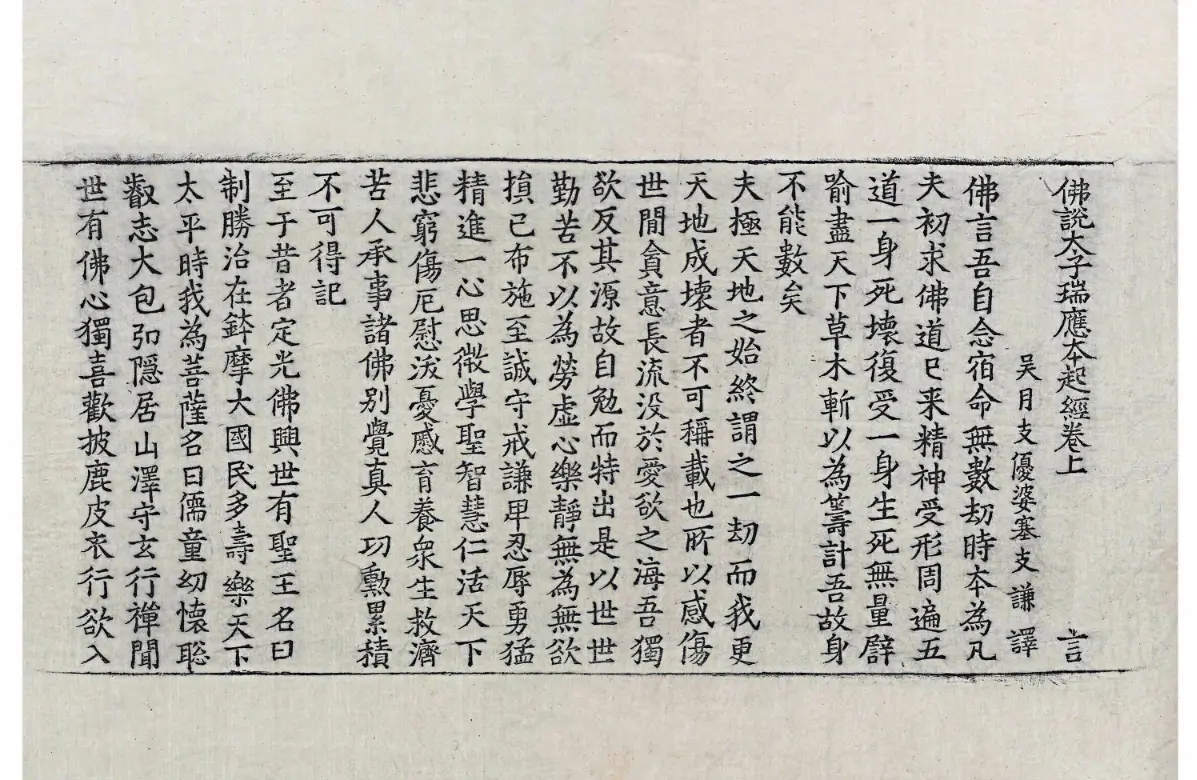 佛說太子瑞應本起經卷上 言
吴月支優婆塞支謙譯
佛言吾自念宿命無數劫時本為凡
夫初求佛道已来精神受形周遍五
道一身死壞復受一身生死無量譬
喻盡天下草木斬以為籌計吾故身
不能數矣
夫極天地之始終謂之一劫而我更
天地成壞者不可稱載也所以感傷
世間貪意長流没於愛欲之海吾獨
欲反其源故自勉而特出是以世世
勤苦不以為勞虚心樂靜無為無欲
損己布施至誠守戒謙卑忍辱勇猛
精進一心思微學聖智慧仁活天下
悲窮傷厄慰沃憂慼育養衆生救濟
苦人承事諸佛别覺真人功勲累積
不可得記
至于昔者定光佛興世有聖王名曰
制勝治在鉢摩大國民多壽樂天下
太平時我為菩薩名曰儒童幼懷聡
叡志大包弘隱居山澤守玄行禪聞
世有佛心獨喜歡披鹿皮衣行欲入